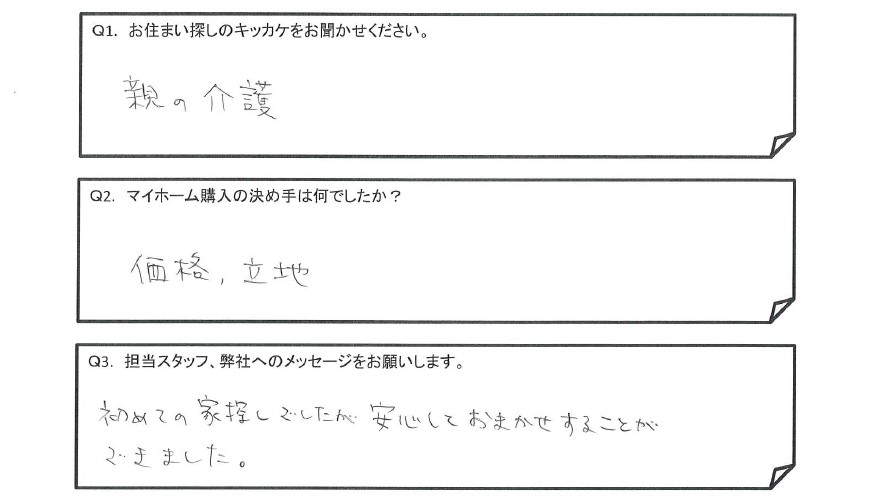 Q1. お住まい探しのキッカケをお聞かせください。
親の介護
Q2. マイホーム購入の決め手は何でしたか？
価格, 立地
Q3. 担当スタッフ、弊社へのメッセージをお願いします。
初めての家探しでしたが安心しておまかせすることが
できました。